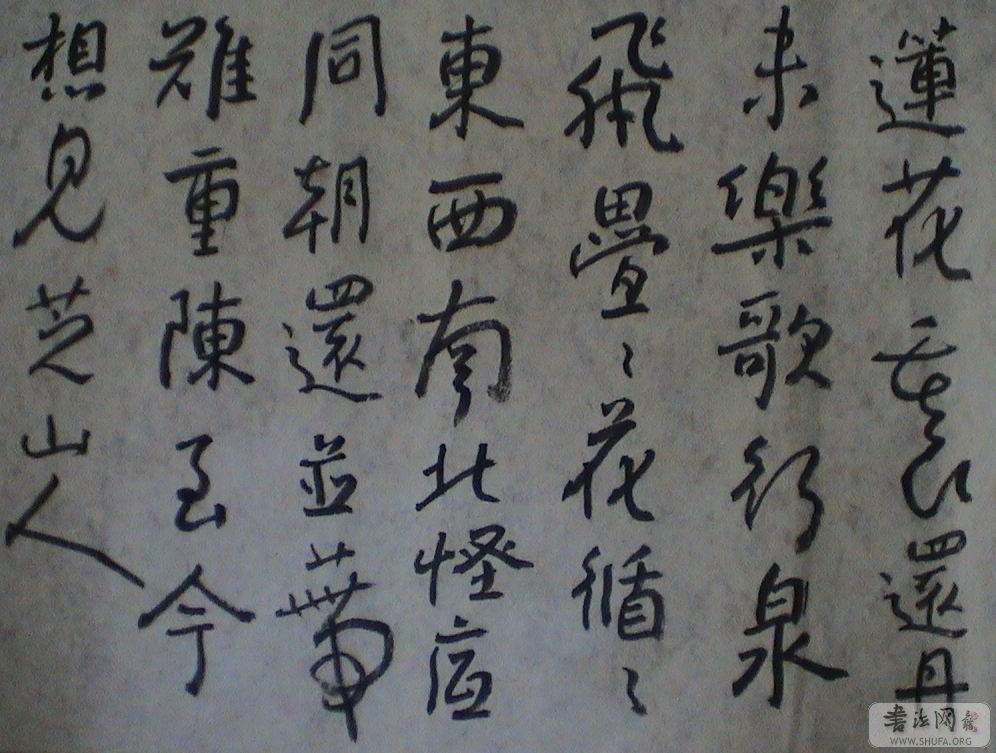 蓮花以還丹
未樂歌行泉
飛疊〻花循〻
東西南北怪底
同朝還並蒂
難重陳至今
想見芝山人
書法网
WWW.SHUFA.ORG